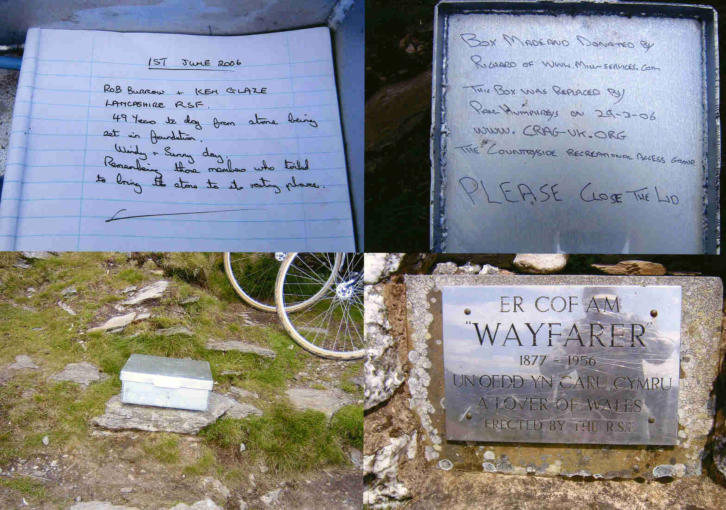 1ST JUNE 2006
ROB BURROW + KEN GLAZE
LANCASHIRE RSF.
49 Years to day from stone being
set in foundation.
Windy + Sunny day
Remembering those members who toiled
to bring the stone to its resting place.
BOX MADE AND DONATED BY
RICHARD OF WWW.MILL-SERVICES.COM
THIS BOX WAS REPLACED BY
PAUL HUMPHREYS ON 29-3-06
WWW.CRAG-UK.ORG
THE COUNTRYSIDE RECREATIONAL ACCESS GROUP
PLEASE CLOSE THE LID
ER COF AM
"WAYFARER"
1877 - 1956
UN OEDD YN CARU CYMRU
A LOVER OF WALES
ERECTED BY THE R.S.F.